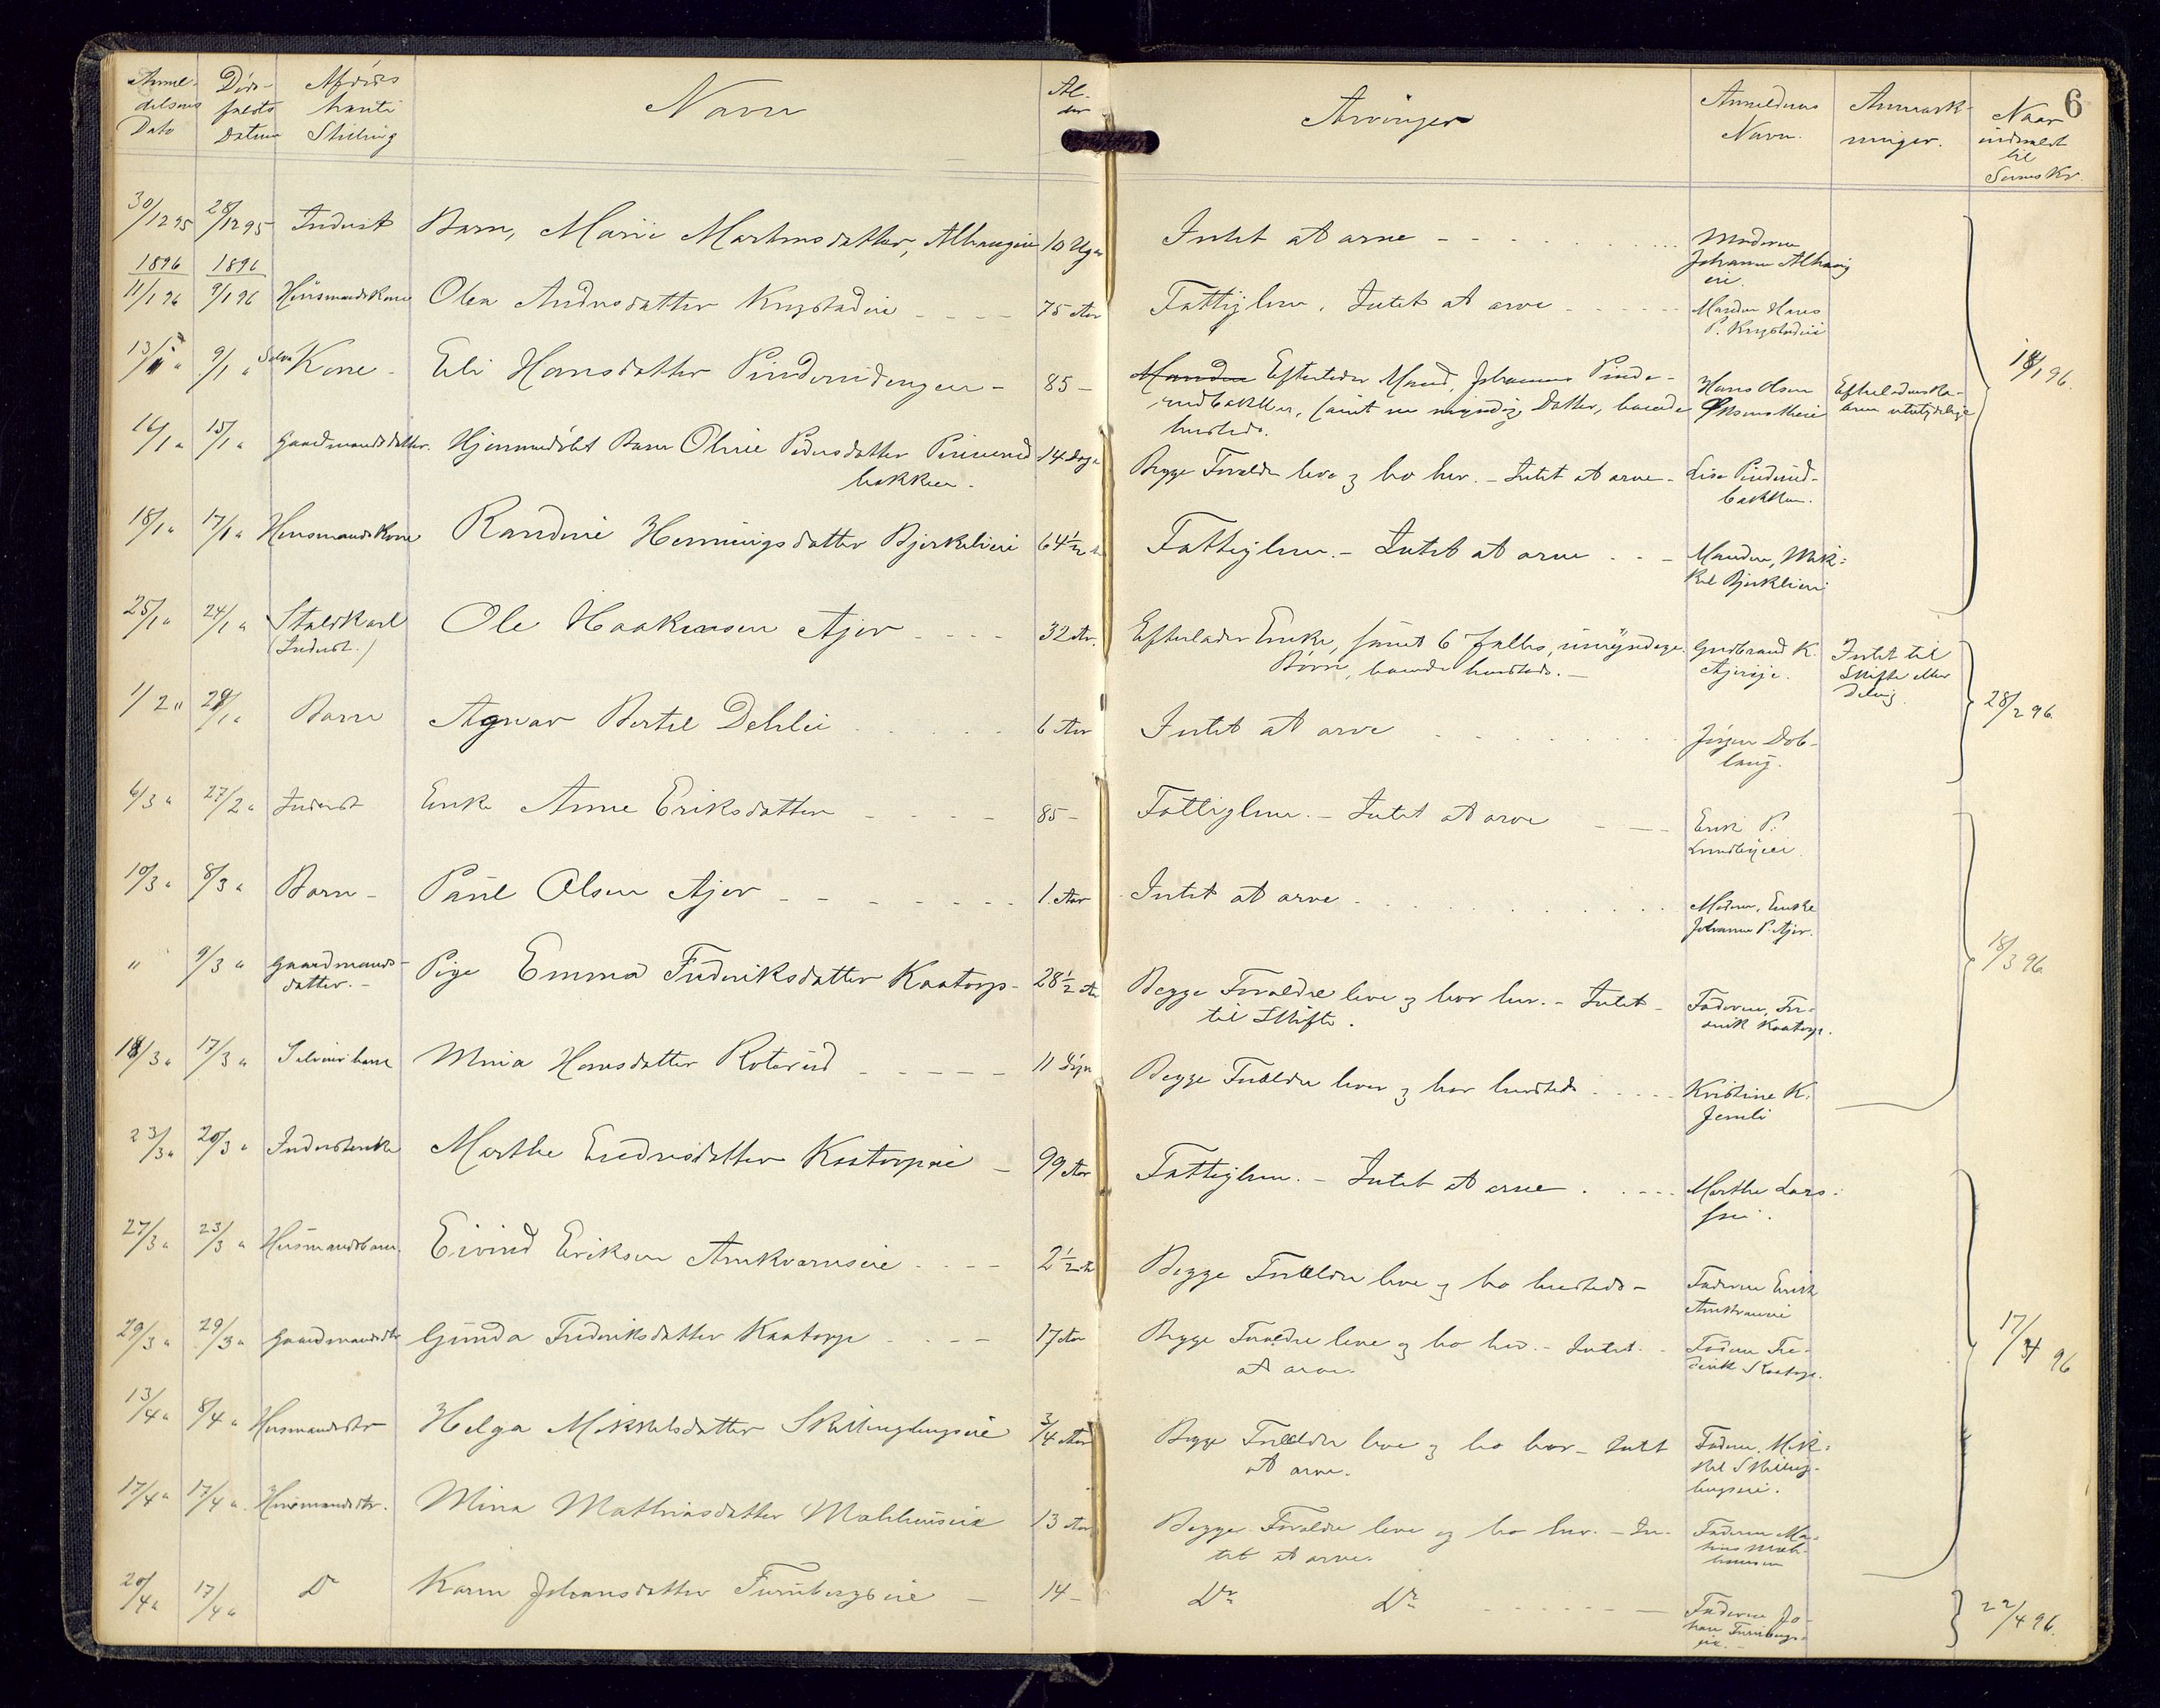 6
Anmel-delsens Dato | Døds-faldets Datum | Afdødes hvert Stilling | Navn | Al-der | Arvinger | Anmelderens Navn. | Anmærk-ninger. | Naar indmeldt til Sorens kr.
30/12 95 | 28/12 95 | Inderst | Barn, Marie Martinsdatter, Alhaugeie | 10 Uger | Intet at arve - - - | Moderen Johanne Alhaugeie.
1896 | 1896
11/1 96 | 9/1 96 | Husmandskone | Olea Andersdatter Krygstadeie - - - | 75 Aar | Fattiglem. Intet at arve - - - | Manden Hans P. Krygstadeie
13/1 " | 9/1 " | Kone - | Eli Hansdatter Pinderudengen - | 85 - | Efterlader Mand, Johannes Pinde-rudbakken, samt en myndig Datter, boende hersteds. | Hans Olsen | Efterladenska-beren ubetydelige | 18/1 96.
16/1 " | 15/1 " | Gaardmandsdatter. | Hjemmedøbt Barn Oline Pedersdatter Pinderud-bakken. | 14 Dage | Begge Forældre leve og bo her. - Intet at arve - | Lise Pinderud-bakken.
18/1 " | 17/1 " | Husmandskone | Randine Henningsdatter Bjerkelieie | 64 1/2 | Fattiglem. - Intet at arve - - | Manden, Mik-kel Bjerklieie
25/1 " | 24/1 " | Staldkarl (Inderst.) | Ole Haakensen Ajer - - - | 32 Aar. | Efterlader Enke, samt 6 fælles, umyndige Børn, boende hersteds. - | Gudbrand K. Ajereie. | Intet til Skifte eller Deling.
1/2 " | 29/1 " | Barn | Agnar Bertel Dehlie | 6 Aar | Intet at arve | Jørgen Dob-laug. | 28/2 96.
6/3 " | 27/2 " | Inderst | Enke Anne Eriksdatter - - - | 85 - | Fattiglem. - Intet at arve - - - | Erik P. Lundbyeie.
10/3 " | 8/3 " | Barn - | Paul Olsen Ajer - - - | 1 Aar | Intet at arve - - - | Moderen, Enke Johanne P. Ajer.
" | 9/3 " | Gaardmands-datter. - | Pige Emma Frederiksdatter Kaatorp - | 28 1/2 Aar | Begge Forældre leve og bor her. - Intet til Skifte. | Faderen, Fre-derik Kaatorp. | 18/3 96
18/3 " | 17/3 " | | Mina Hansdatter Roterud - - - | 11 Dage | Begge Forældre lever og bor hersteds - - - | Kristine K. Jemli
23/3 " | 20/3 " | Inderstenke | Marthe Endresdatter Kaatorpeie - | 99 Aar | Fattiglem. - Intet at arve - - - | Marthe Lars-
27/3 " | 23/3 " | Husmandsbarn. | Eivind Eriksen Arnkværnseie - - - | 2 1/2 | Begge Forældre leve og bo hersteds - | Faderen Erik
29/3 " | 29/3 " | Gaardmandsdtr | Gunda Frederiksdatter Kaatorp - - - | 17 Aar | Begge Forældre leve og bo her. - Intet at arve. | Faderen Fre-derik Kaatorp. | 17/4 96
13/4 " | 8/4 " | Husmandsdtr | Helga Mikkelsdatter | 3/4 Aar | Begge Forældre leve og bo her - Intet at arve. | Faderen. Mik-kel
17/4 " | 17/4 " | Husmandsdtr. | Mina Mathiasdatter | 13 Aar | Begge Forældre leve og bo her. - In-tet at arve. | Faderen Ma-thias
20/4 " | 17/4 " | Do | Karen Johansdatter Furubergseie - | 14 - | Do | Do - - - | Faderen Jo-han Furubergs-eie. - | 22/4 96.